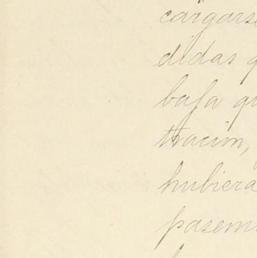 cargarse
didas q
baja qu
tracion,
hubiera
pasemo